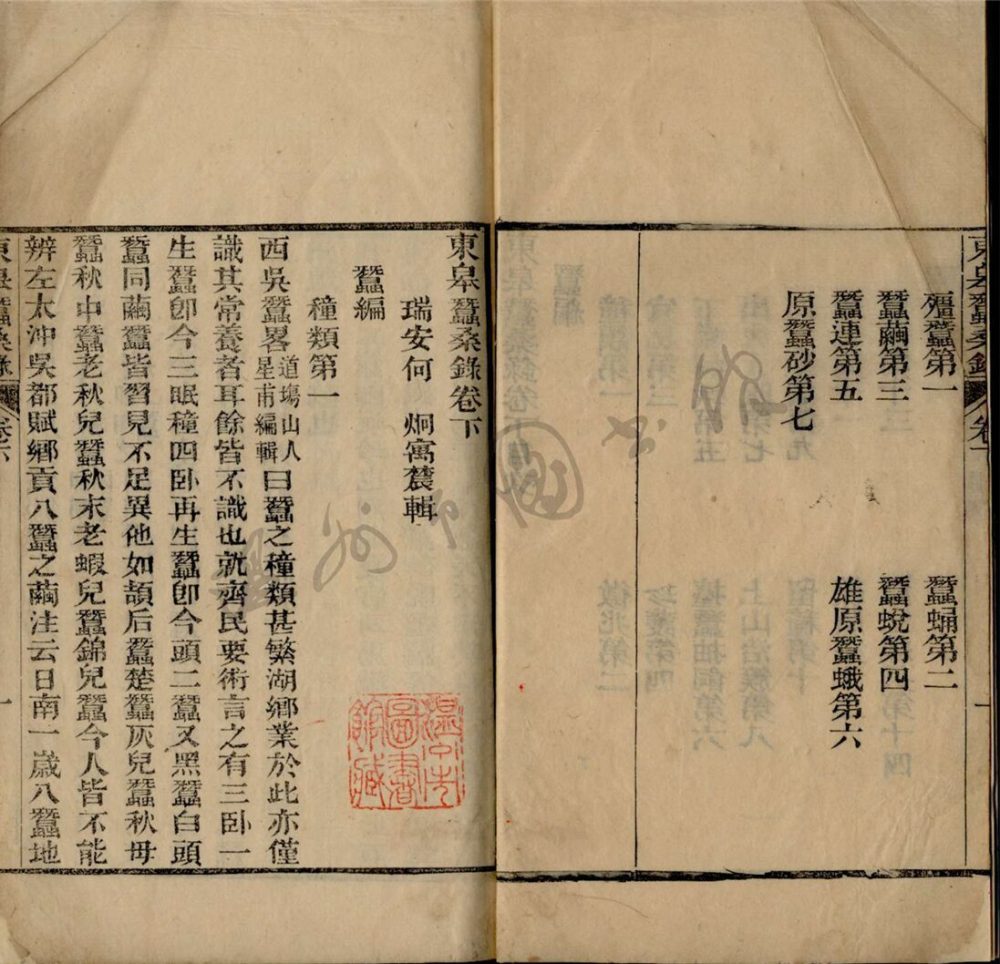 東皋蠶桑錄
殭蠶第一　蠶蛹第二
蠶繭第三　蠶蛻第四
蠶連第五　雄原蠶蛾第六
原蠶砂第七
東皋蠶桑錄卷下
瑞安何　炯寓農輯
蠶編
種類第一
西吳蠶畧道塲山人星甫編輯曰蠶之種類甚繁湖鄉業於此亦僅
識其常養者耳餘皆不識也就齊民要術言之有三卧一
生蠶卽今三眠種四卧再生蠶卽今頭二蠶又黑蠶白頭
蠶同繭蠶皆習見不足異他如頡后蠶楚蠶灰兒蠶秋毋
蠶秋中蠶老秋兒蠶秋末老蝦兒蠶錦兒蠶今人皆不能
辨左太沖吳都賦鄉貢八蠶之繭注云日南一歲八蠶地
東皋蠶桑錄
溫州市圖書館藏
溫州市圖書館